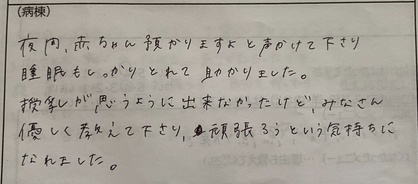 (病棟)
夜間、赤ちゃん預かりますよと声かけて下さり
睡眠もしっかりとれて助かりました。
授乳が思うように出来なかったけど、みなさん
優しく教えて下さり、頑張ろうという気持ちに
なれました。